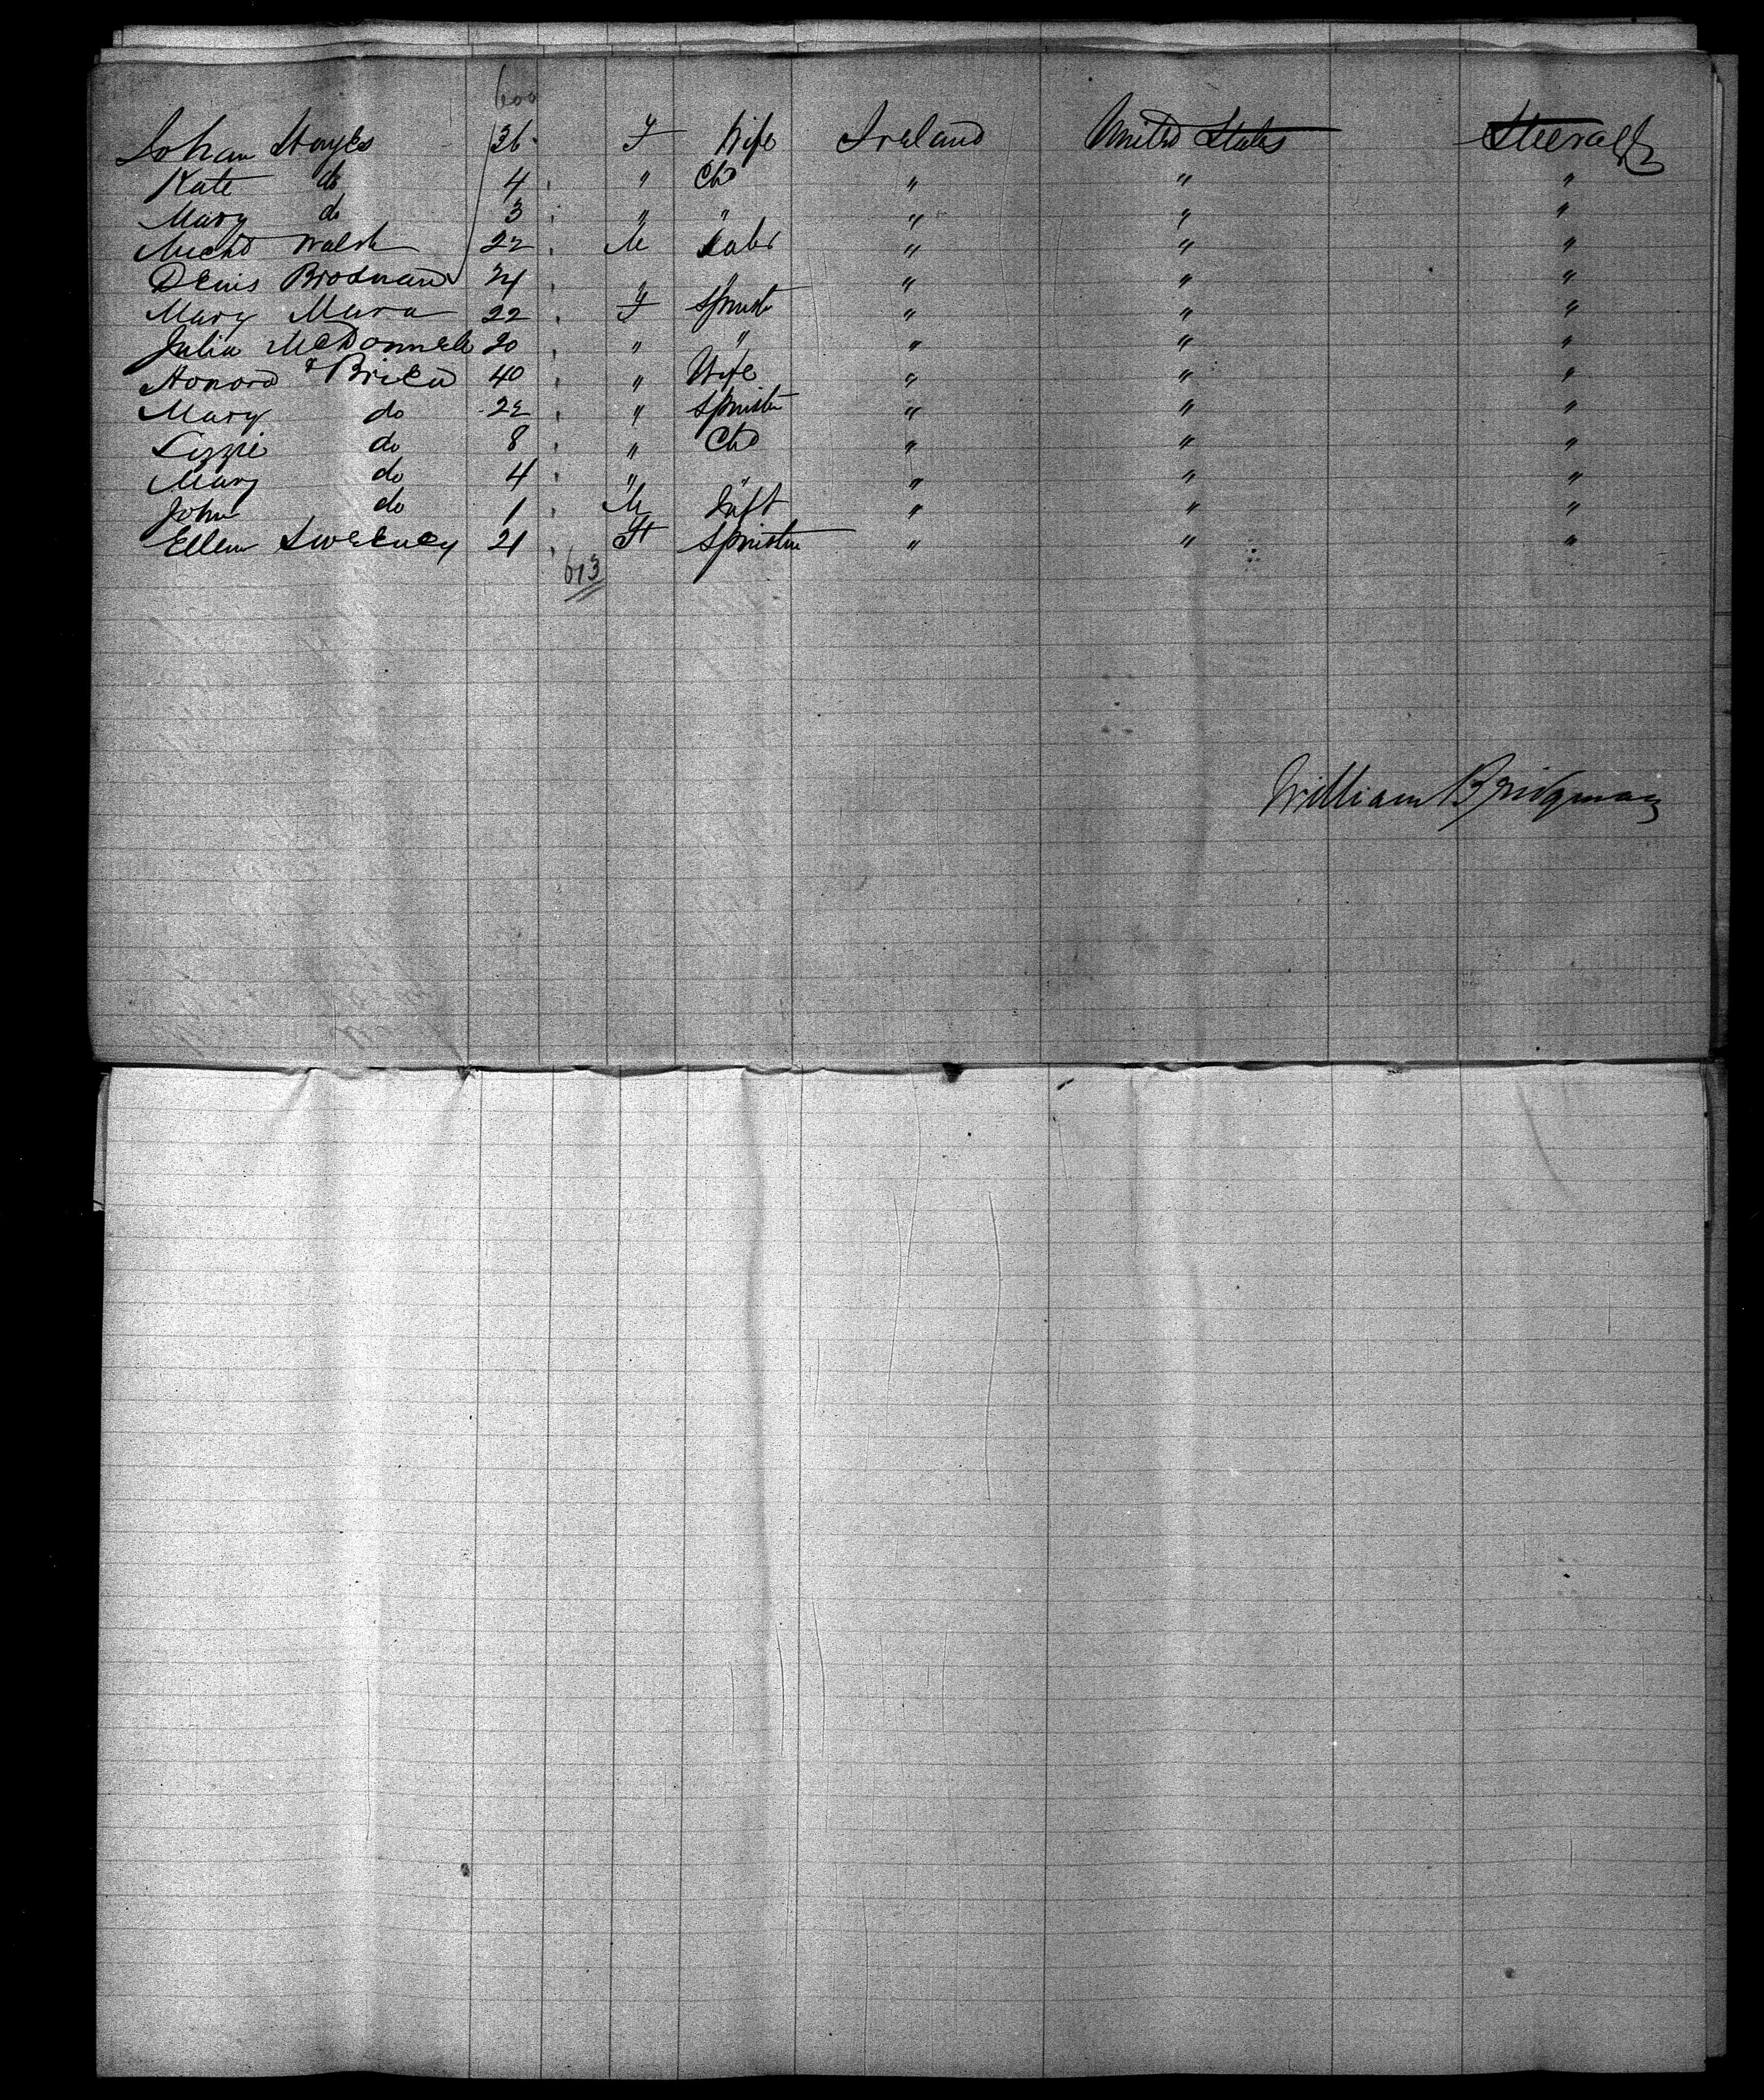 600
Johan Hayes 36 F Wife Ireland United States Steerage
Kate do 4 " Chd " " "
Mary do 3 " " " " "
Michd Walsh 22 M Labr " " "
Denis Brosnan 24 " " " "
Mary Mara 22 F Spinstr " " "
Julia McDonnell 20 " " " " "
Honora O'Brien 40 " Wife " " "
Mary do 22 " Spinstr " " "
Lizzie do 8 " Chd " " "
Mary do 4 " " " " "
John do 1 M Inft " " "
Ellen Sweeney 21 F Spinster " " "
613
William Bridgman